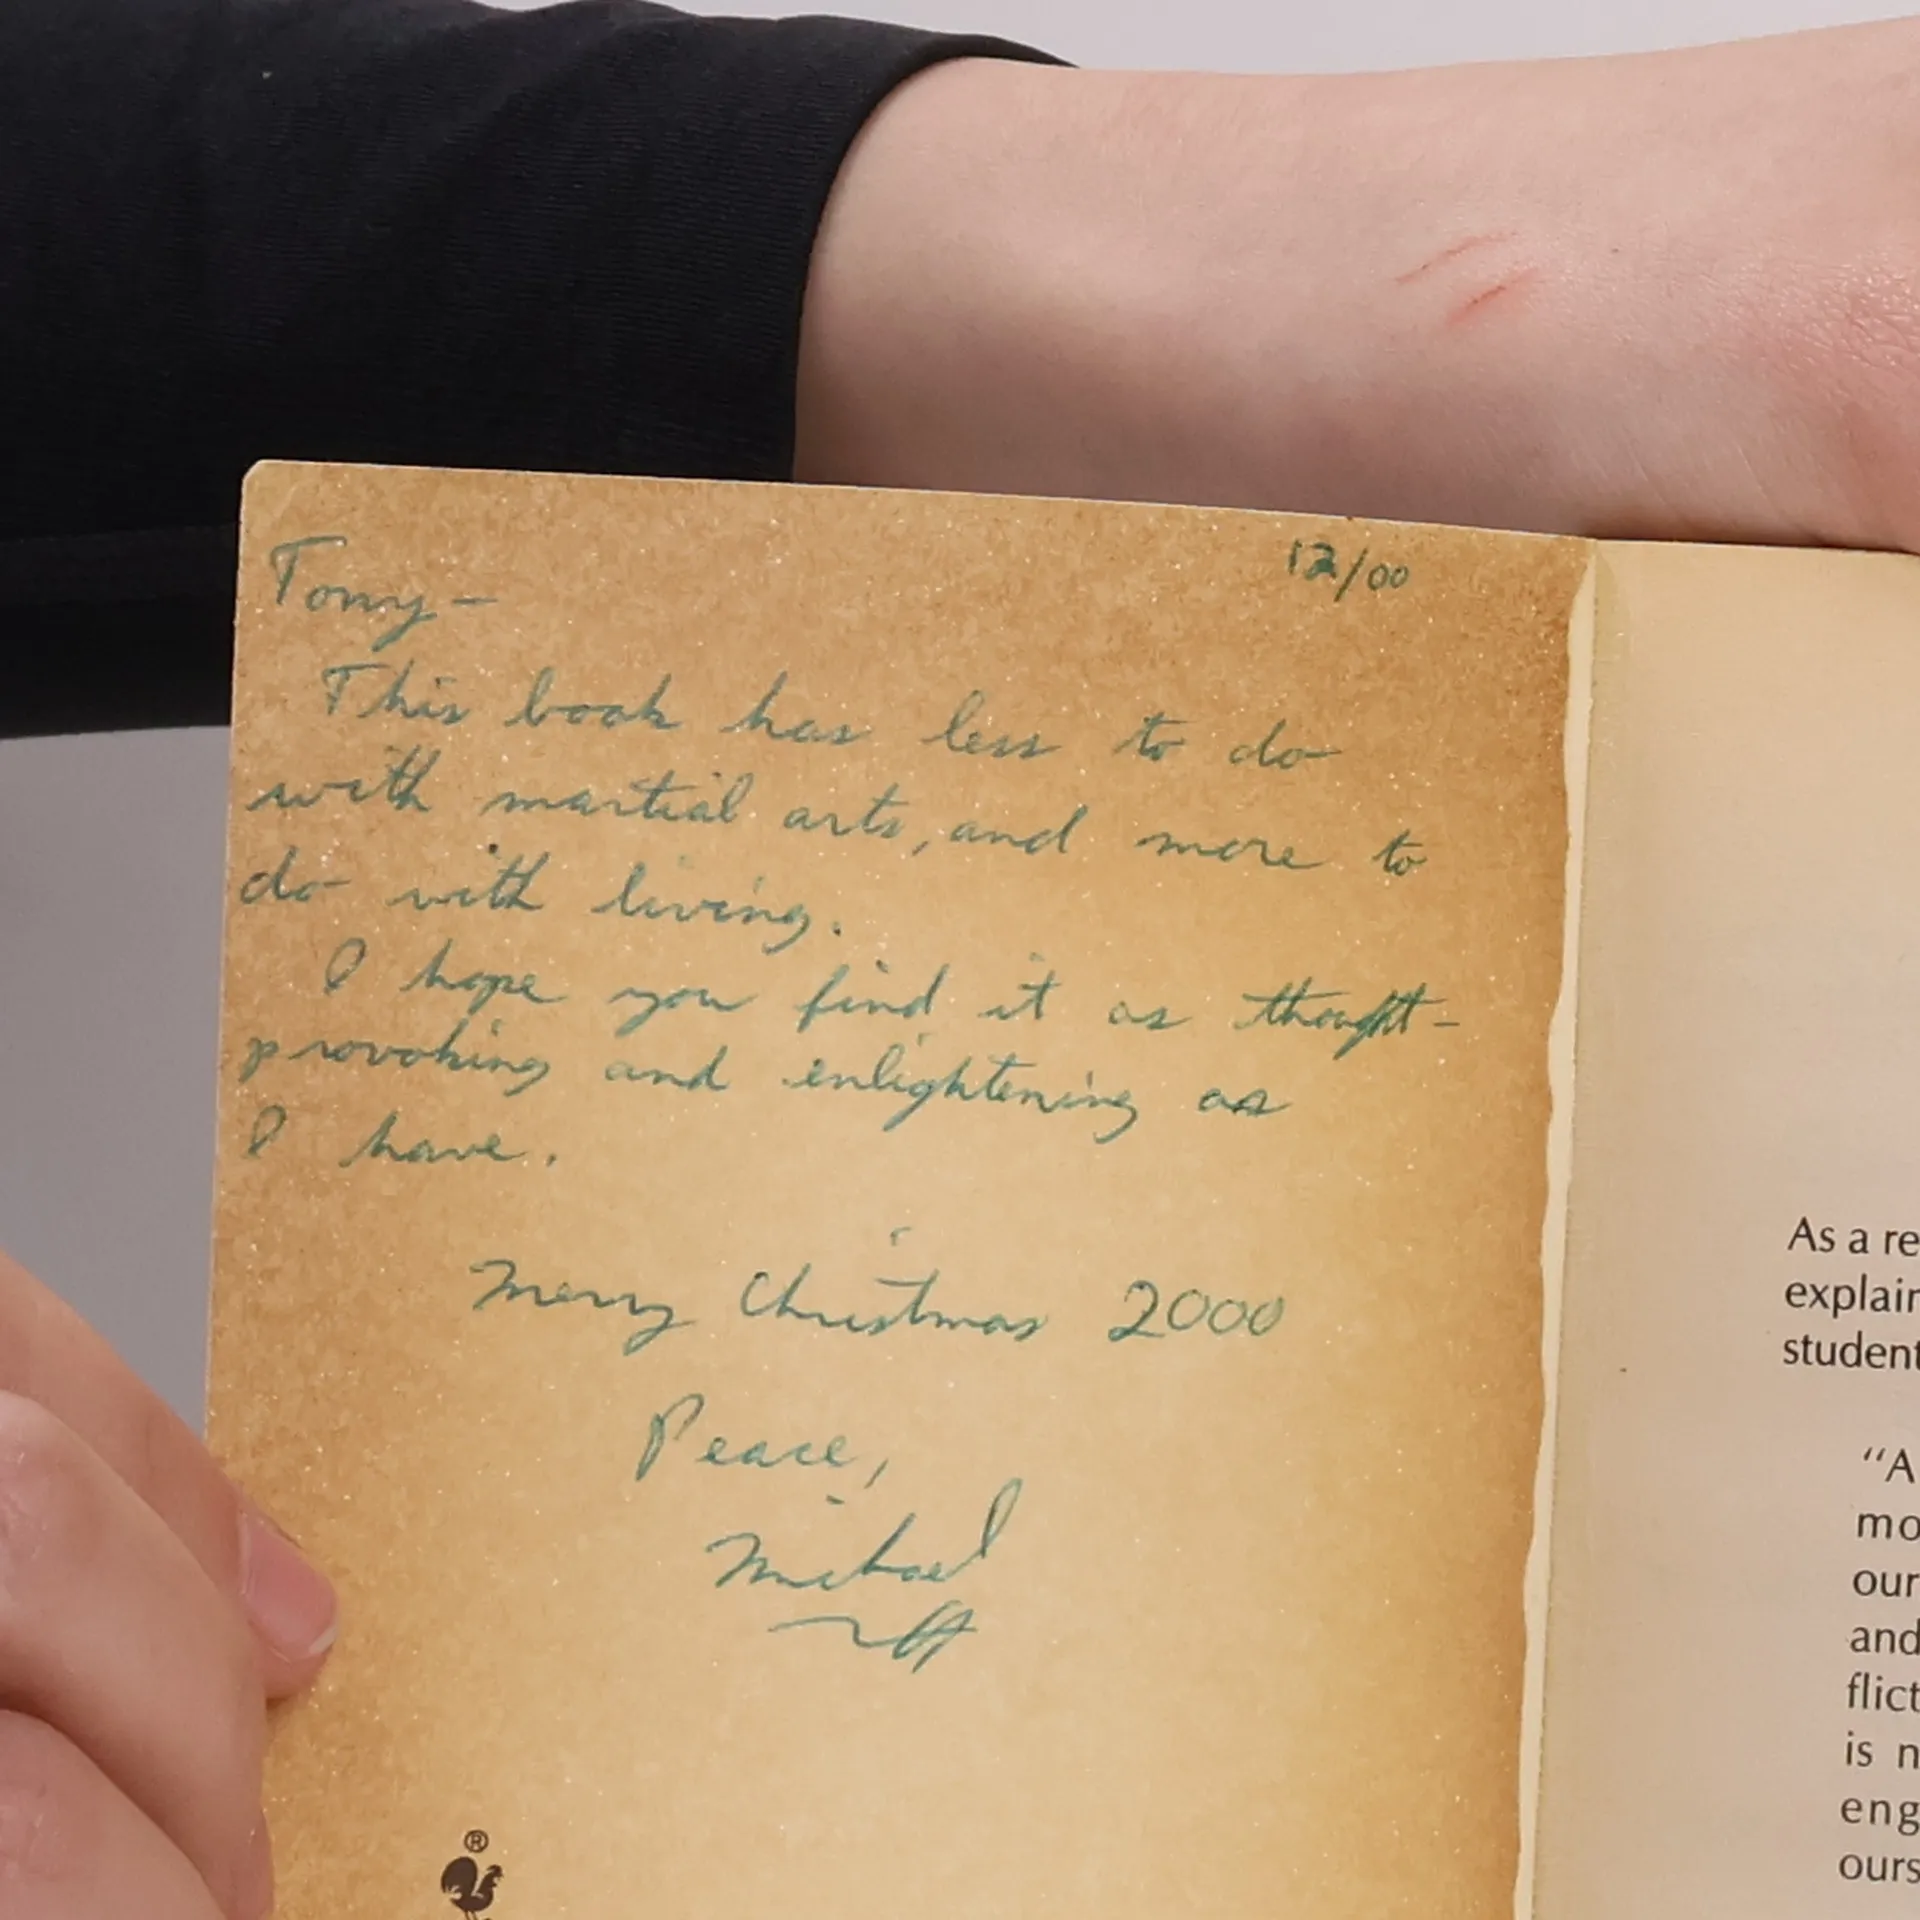 12/00
Tony-
This book has less to do
with martial arts, and more to
do with living.
I hope you find it as thought-
provoking and enlightening as
I have.
Merry Christmas 2000
Peace,
Michael
®
As a re
explain
student
"A
mo
our
and
flict
is n
eng
ours